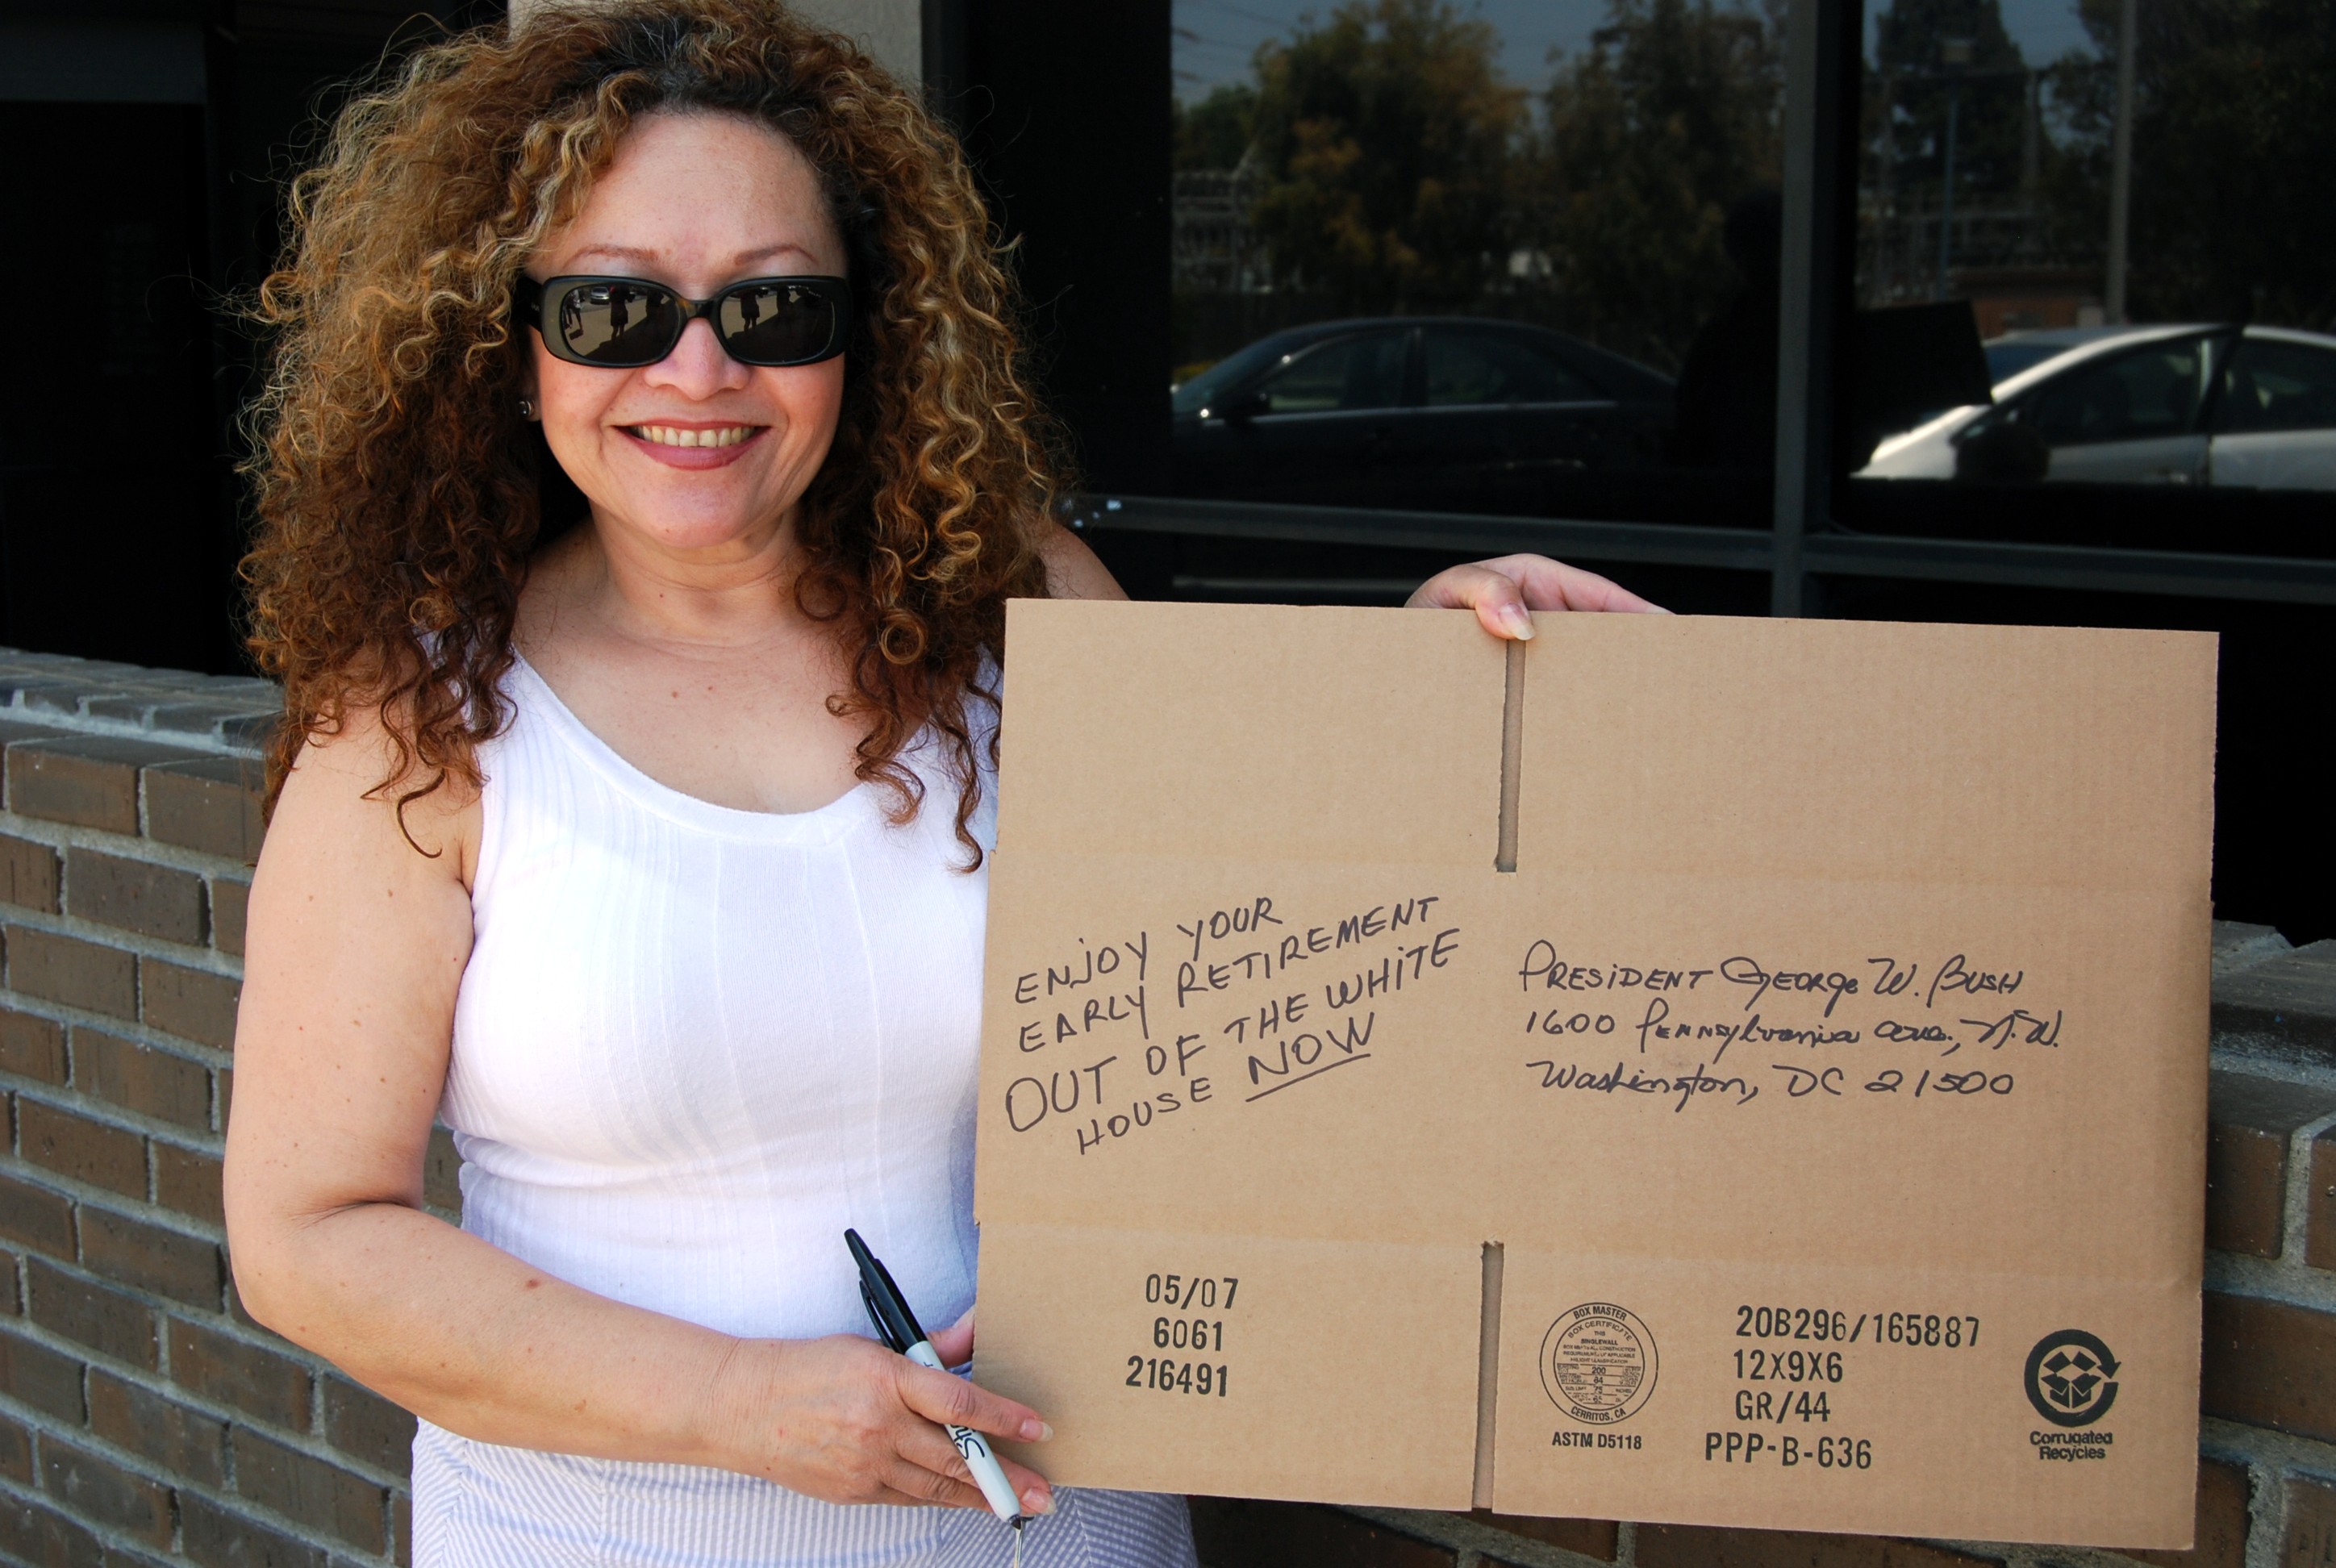 ENJOY YOUR
EARLY RETIREMENT
OUT OF THE WHITE
HOUSE NOW
PRESIDENT GEORGE W. BUSH
1600 PENNSylvania ave., N.W.
Washington, DC 21500
05/07
6061
216491
BOX MASTER
BOX CERTIFICATE
THIS
SINGLEWALL
200
CERRITOS, CA
ASTM D5118
20B296/165887
12X9X6
GR/44
PPP-B-636
Corrugated
Recycles